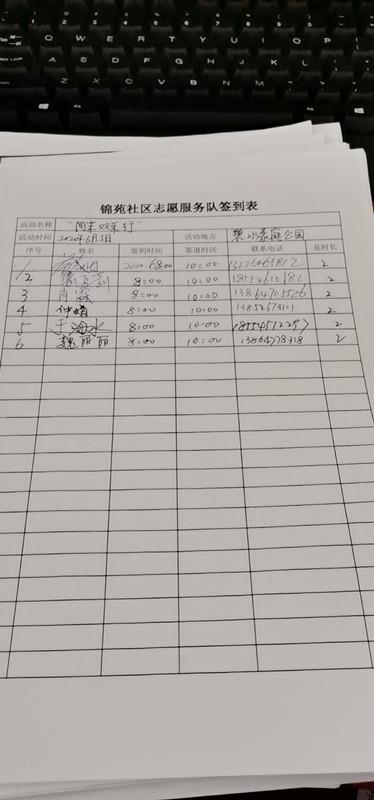 锦苑社区志愿服务队签到表
活动名称 "周末义采行"
活动时间 2020年6月5日 活动地点 碧水豪庭公园
序号 姓名 签到时间 签退时间 联系电话 总时长
1 8:00 10:00 2
2 8:00 10:00 2
3 肖霖 8:00 10:00 13864705526 2
4 仲婧 8:00 10:00 2
5 于海水 8:00 10:00 18554512297 2
6 魏丽丽 8:00 10:00 13864778318 2